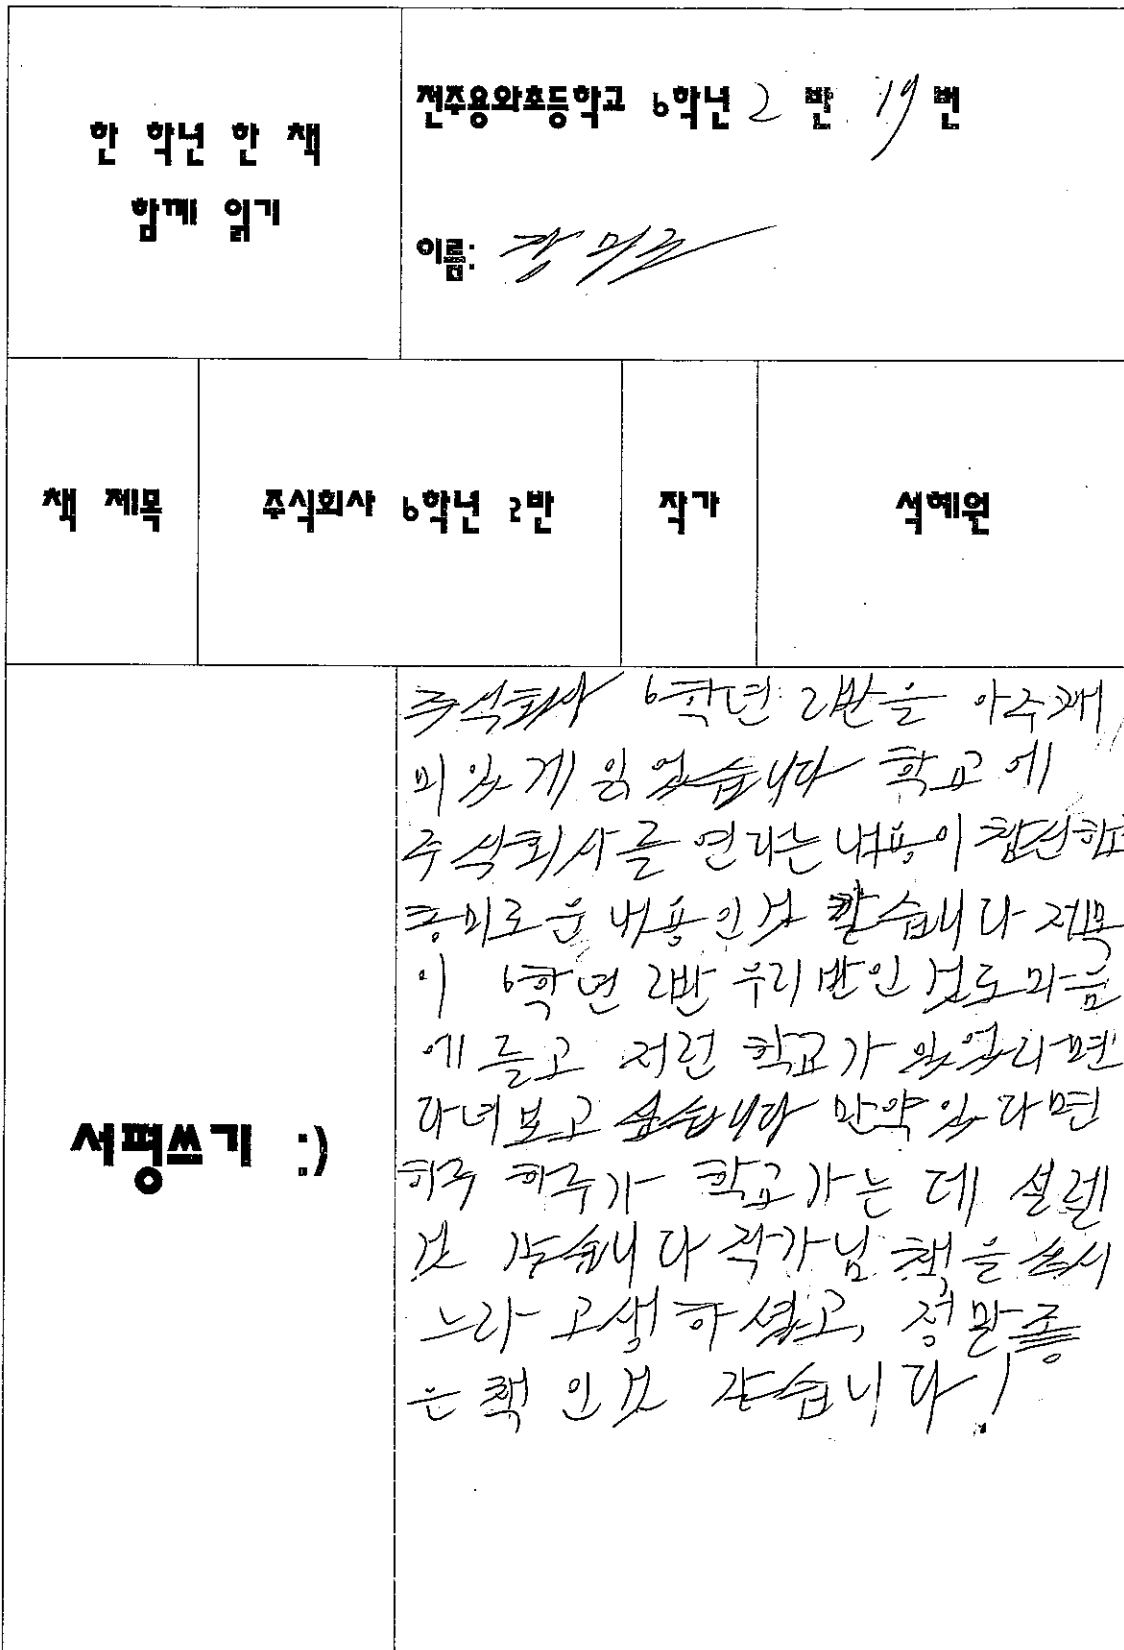 한 학년 한 책
함께 읽기
전주용와초등학교 6학년 2 반 19 번
이름:
책 제목
주식회사 6학년 2반
작가
석혜원
서평쓰기 :)
주식회사 6학년 2반을 아주재
미있게 읽었습니다 학교에
주식회사를 연다는 내용이 참신하고
흥미로운 내용인것 같습니다 제목
이 6학년 2반 우리반인 것도 마음
에 들고 저런 학교가 있었다면
다녀보고 싶습니다 만약있다면
하루 하루가 학교가는 데 설렐
것 같습니다 작가님 책을 쓰시
느라 고생하셨고, 정말좋
은 책 인것 같습니다!